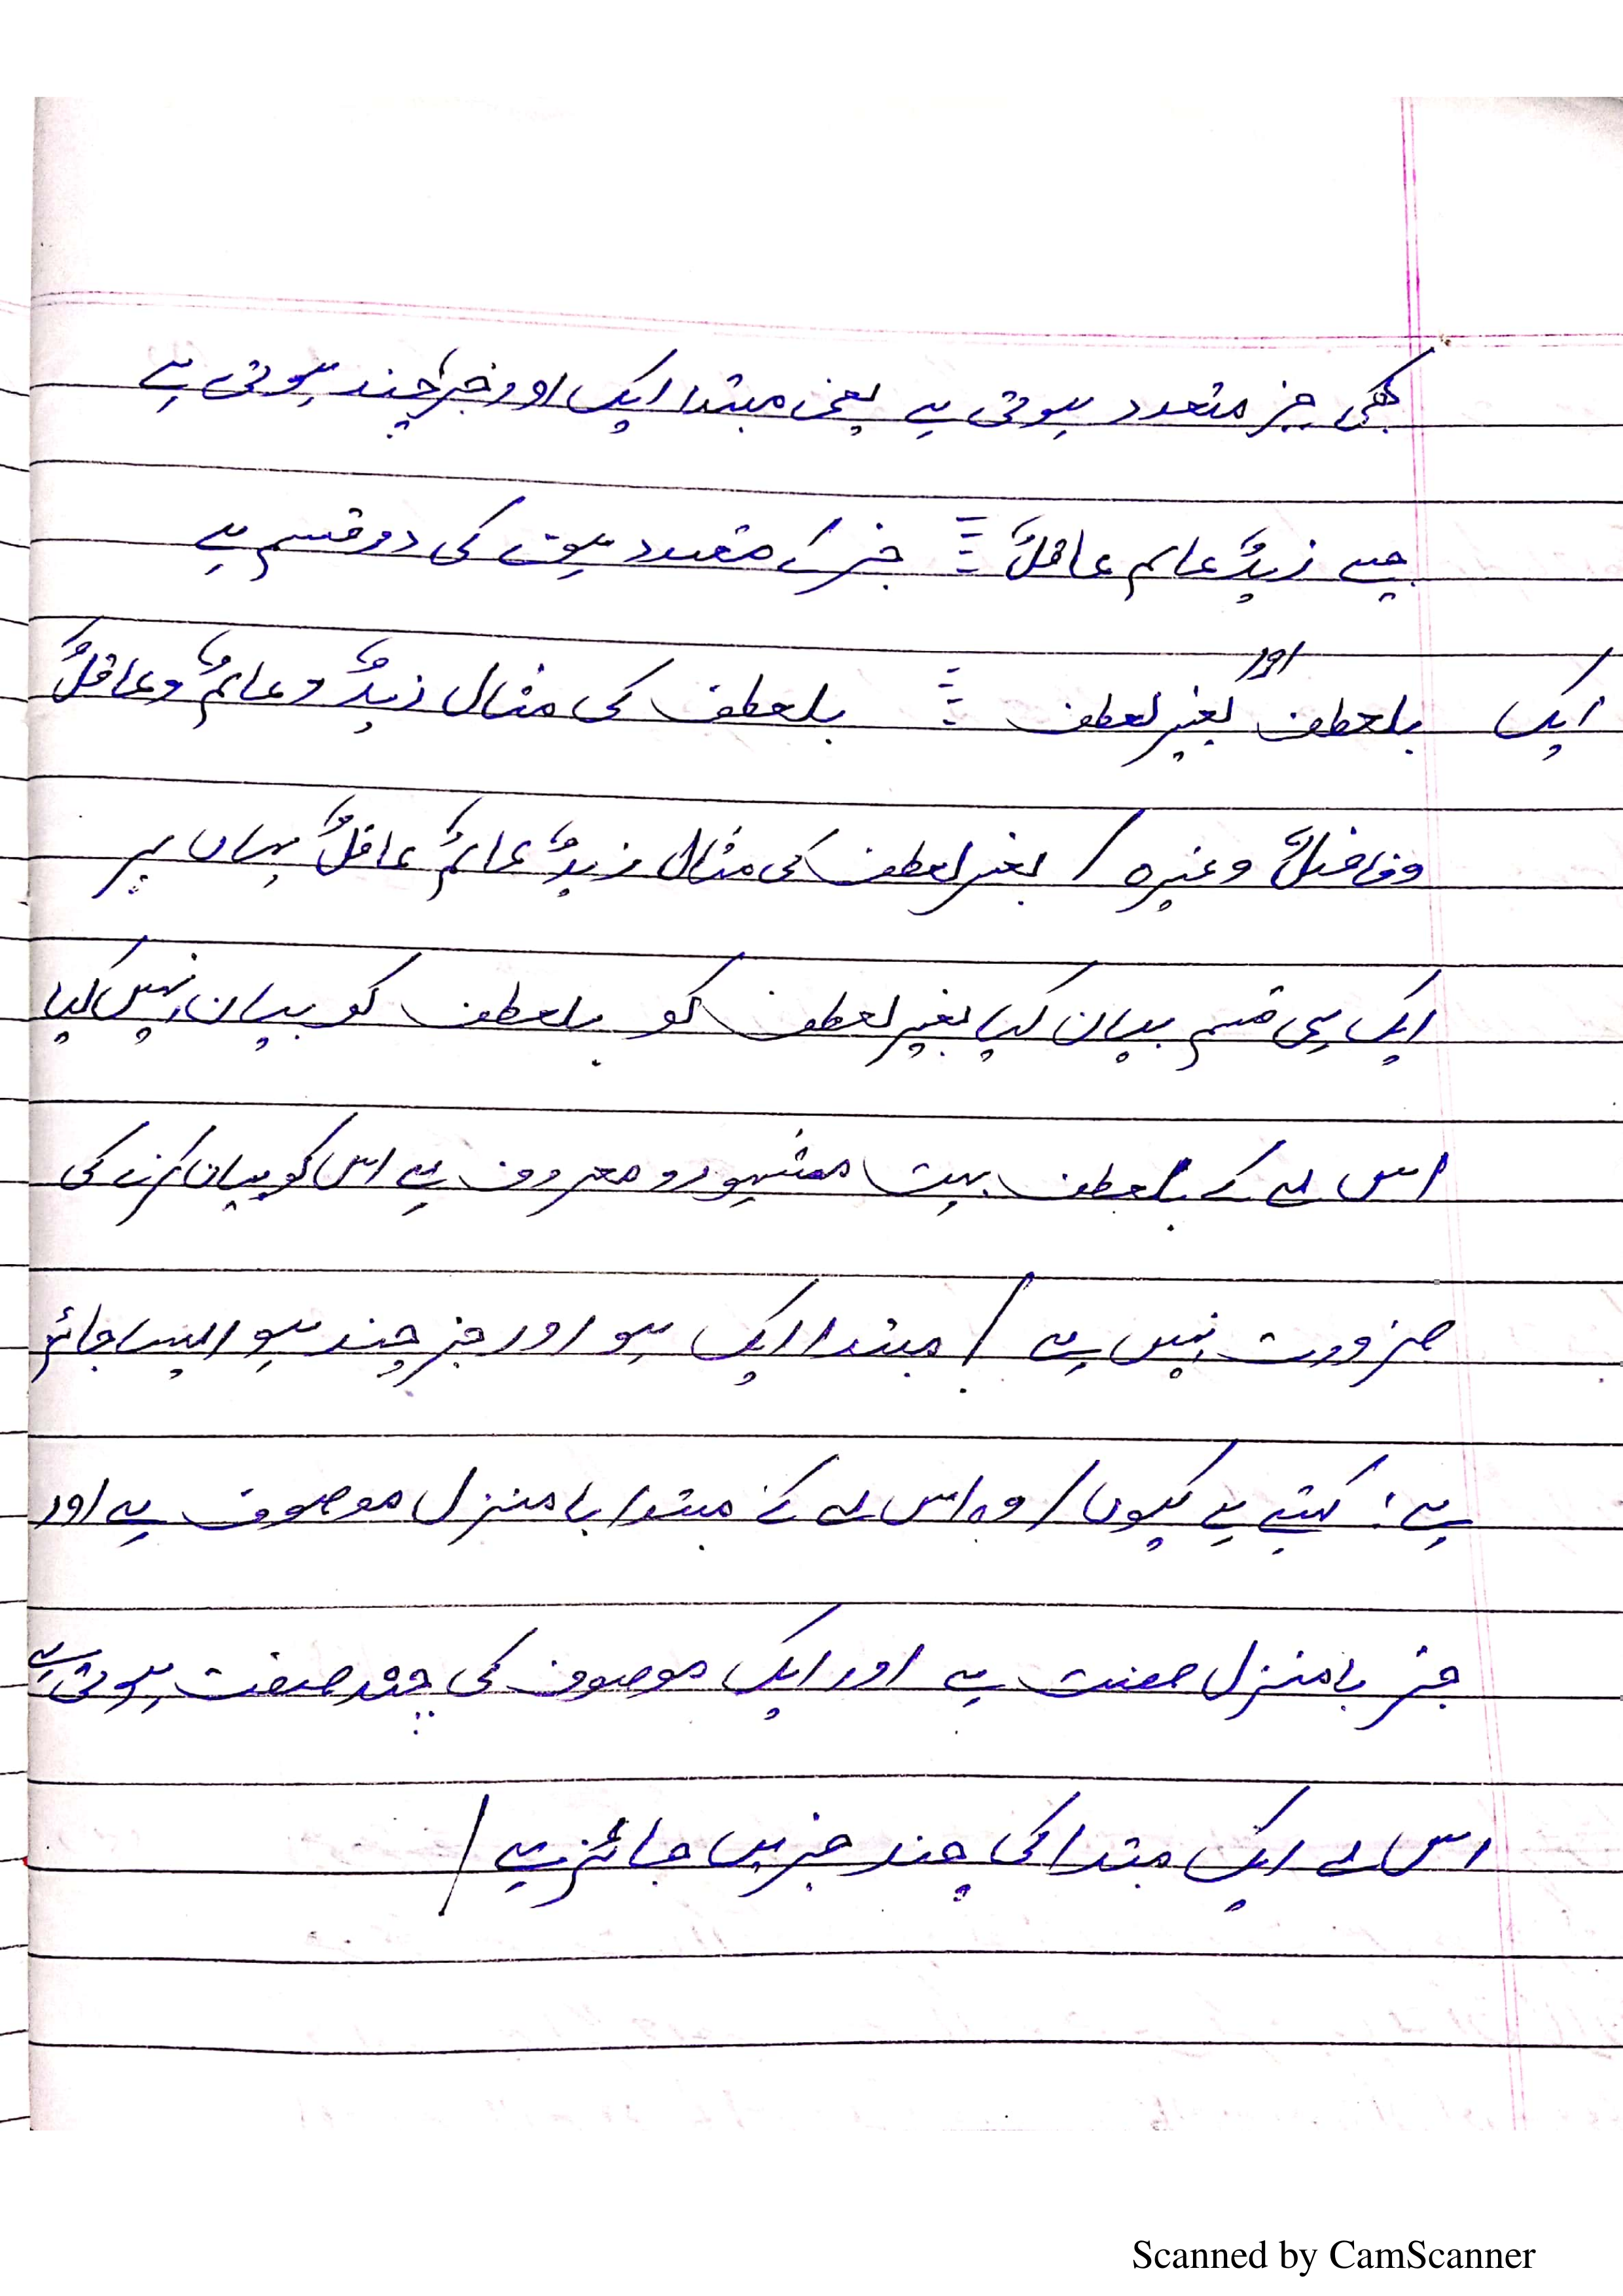 کبھی خبر متعدد ہوتی ہے یعنی مبتدا ایک اور خبر چند ہوتی ہے
جیسے زیدٌ عالم عاقلٌ ۔ خبر کے متعدد ہونے کی دو قسم ہے
ایک بلعطف اور بغیر لعطف ۔ بلعطف کی مثال زیدٌ و عالمٌ و عاقلٌ
و فاضلٌ وغیرہ / بغیر لعطف کی مثال زیدٌ عالمٌ عاقلٌ یہاں پر
ایک ہی قسم بیان کیا بغیر لعطف کو بلعطف کو بیان نہیں کیا
اس لے کے بلعطف بہت مشہور و معروف ہے اس کو بیان کرنے کی
ضرورت نہیں ہے / مبتدا ایک ہو اور خبر چند ہو ایسا جائز
ہے؛ کہتے ہے کیوں / وہ اس لے کے مبتدا با منزل موصوف ہے اور
خبر با منزل صفت ہے اور ایک موصوف کی چند صفت ہوتی ہے
اس لے ایک مبتدا کی چند خبریں جائز ہے /
Scanned by CamScanner